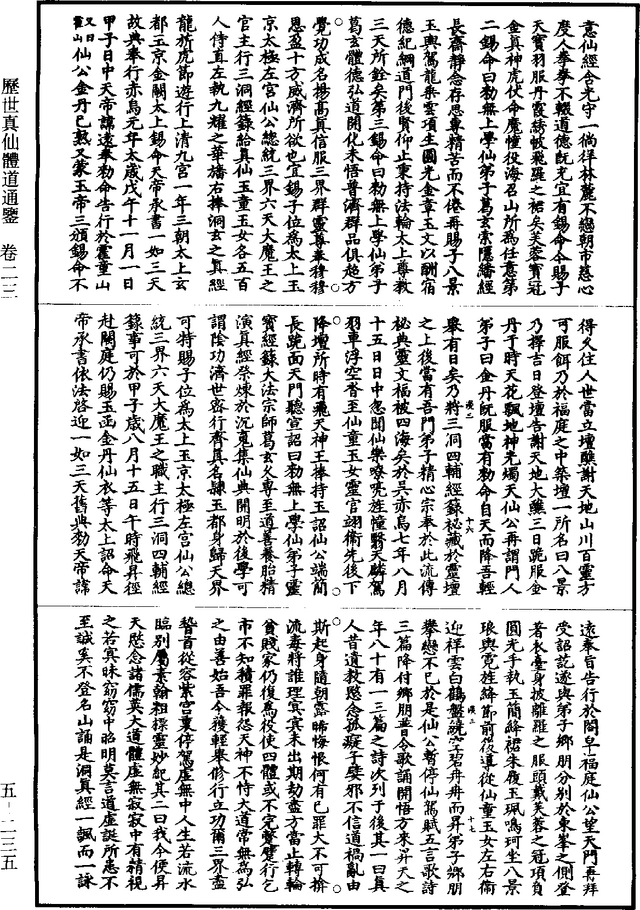 歷世真仙體道通鑒 卷二三
五—二三五
意仙經含光守一徜徉林麓不戀朝市慈心
度人拳拳不輟道德既充宜有錫命今賜子
天寶羽服丹霞繡帔飛羅之裙芙蓉寶冠
金真神虎伏命魔幢役海召山所為任意第
二錫命曰勑無上學仙弟子葛玄崇隱繙經
長齋靜念存思專精苦而不倦再賜子八景
玉輿駕龍乘雲項生圓光金章玉文以酬宿
德紀綱道門後賢仰止秉持法輪太上尊教
三天所銓矣第三錫命曰勑無上學仙弟子
葛玄體德弘道開化未悟普濟群品俱超方
覺功成名揚高真信服三界群靈尊奉穆穆
恩盈十方威濟所欲也宜錫子位為太上玉
京太極左宮仙公總統三界六天大魔王之
官主行三洞經籙給真仙玉童玉女各五百
人侍直左執九耀之華旛右捧洞玄之真經
龍旂虎節遊行上清九宮一年三朝太上玄
都玉京金闕太上錫命天帝承書一如三天
故典奉行赤烏元年太歲戊午十一月一日
甲子日中天帝諱遠奉勑命告行於靈童山
仙公金丹已熟又蒙玉帝三頒錫命不
得久住人世當立壇醮謝天地山川百靈方
可服餌乃於福庭之中築壇一所名曰八景
乃擇吉日登壇告謝天地大醮三日跪服金
丹于時天花飄地神光燭天仙公再謂門人
弟子曰金丹既服當有勑命自天而降吾輕
舉有日矣乃將三洞四輔經籙祕藏於靈壇
之上後當有吾門弟子精心宗奉於此流傳
祕典靈文福被四海矣於吳赤烏七年八月
十五日日中忽聞仙樂嘹喨旌幢翳天驎駕
羽車浮空沓至仙童玉女靈官翊衛先後下
降壇所時有飛天神王捧持玉詔仙公端簡
長跪面天門聽宣詔曰勑無上學仙弟子靈
寶經籙大法宗師葛玄久專至道善養胎精
演真經榮煉於沉冤集仙典開明於後學可
謂陰功濟世密行齊真名隸玉都身歸天界
可特賜子位為太上玉京太極左宮仙公總
統三界六天大魔王之職主行三洞四輔經
籙事可於甲子歲八月十五日午時飛昇徑
赴闕庭仍賜玉函金丹仙衣等太上詔命天
帝承書依法啓迎一如三天舊典勑天帝諱
遠奉旨告行於閤皁福庭仙公望天門再拜
受詔訖遂與弟子鄉朋分別於東峯之側登
著衣臺身披離羅之服頭戴芙蓉之冠項負
圓光手執玉簡絳裙朱履玉珮鳴珂坐八景
琅輿霓旌絳節前後導從仙童玉女左右衛
迎祥雲白鶴盤繞空碧冉冉而昇弟子鄉朋
攀戀不已於是仙公暫停仙駕賦五言歌詩
三篇降付鄉朋普令歌誦開悟方來昇天之
年八十有一三篇之詩次列于後其一曰真
人昔遺教愍念孤癡子嬖邪不信道禍亂由
斯起身隨朝露晞悔恨何有已罪大不可掩
流毒將誰理冥冥未出期劫盡方當止轉輪
貧賤家仍復為役使四體或不完蹩躄行乞
市不知積罪報怨天神不恃大道常無為弘
之由善始吾今獲輕舉修行立功爾三界盡
稽首從容紫宮裏停駕虛無中人生若流水
臨別屬素翰粗標靈妙紀其二曰我今便昇
天愍念諸儒英大道體虛無寂寂中有精視
之若冥昧窈窈中昭明莫言道虛誕所患不
至誠奚不登名山誦是洞真經一諷而一詠